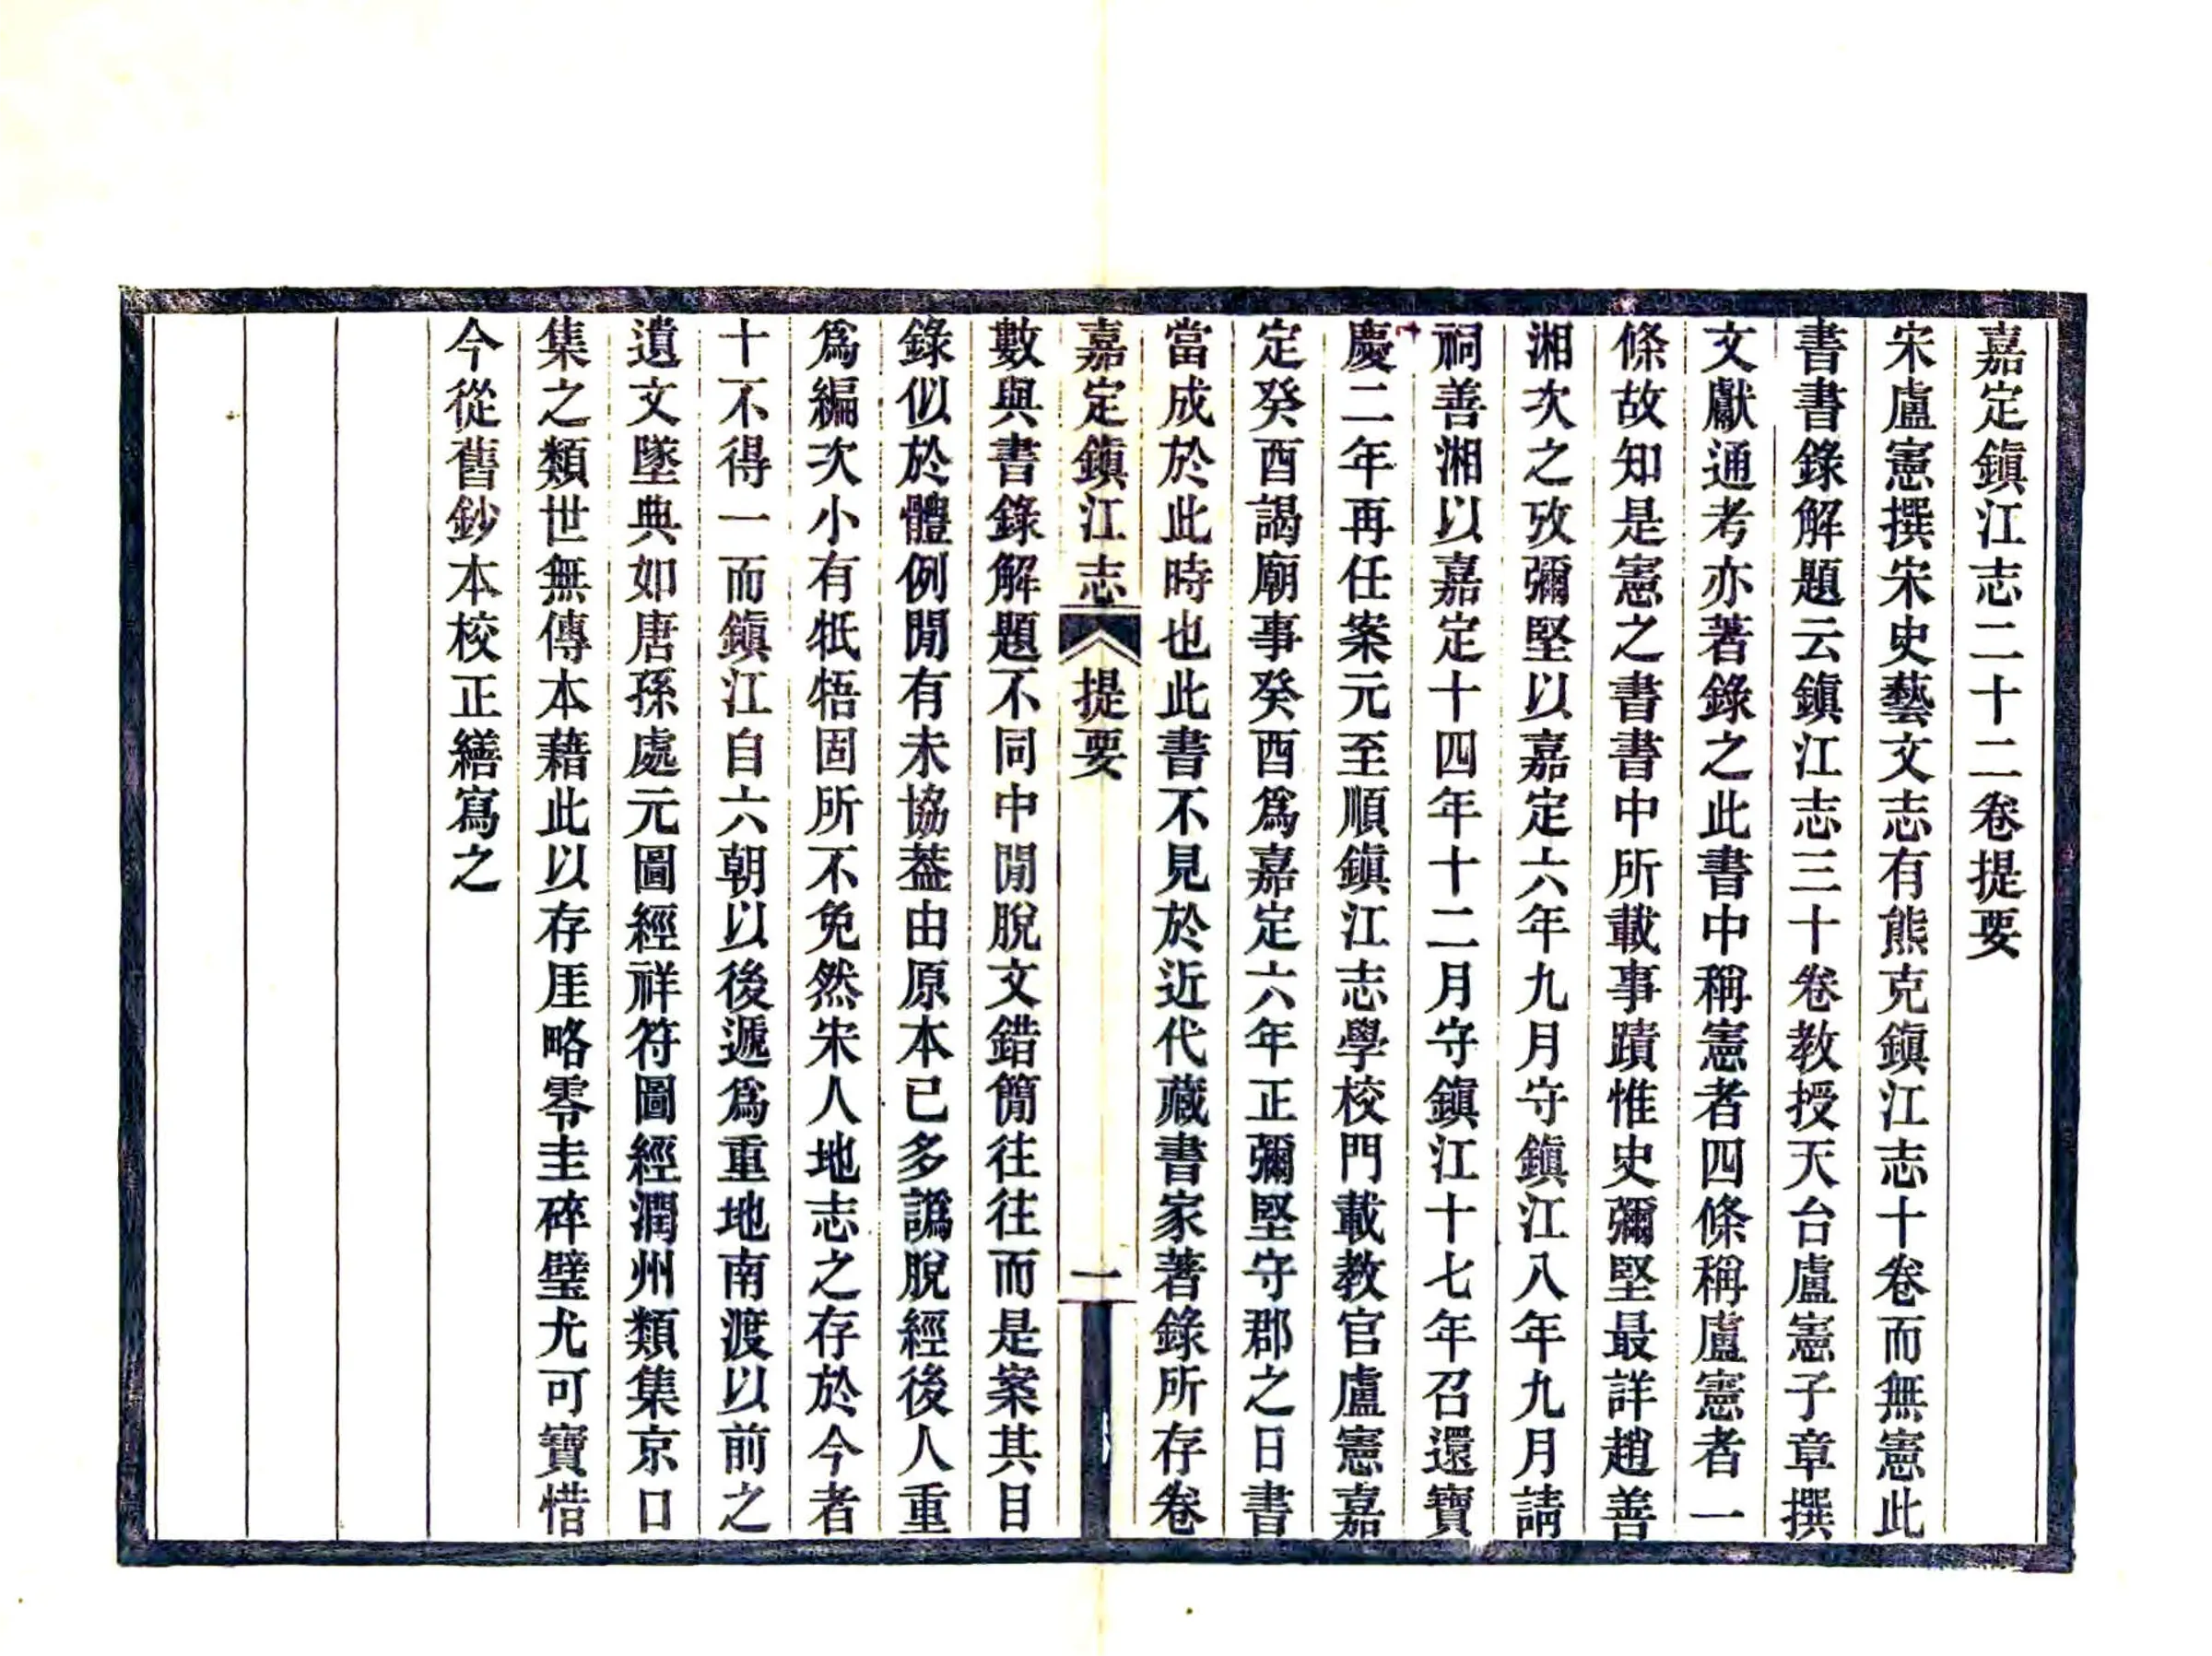 嘉定鎭江志二十二卷提要
宋盧憲撰宋史藝文志有熊克鎭江志十卷而無憲此
書書錄解題云鎭江志三十卷教授天台盧憲子章撰
文獻通考亦著錄之此書中稱憲者四條稱盧憲者一
條故知是憲之書書中所載事蹟惟史彌堅最詳趙善
湘次之攷彌堅以嘉定六年九月守鎭江八年九月請
祠善湘以嘉定十四年十二月守鎭江十七年召還寶
慶二年再任案元至順鎭江志學校門載教官盧憲嘉
定癸酉謁廟事癸酉爲嘉定六年正彌堅守郡之日書
當成於此時也此書不見於近代藏書家著錄所存卷
嘉定鎭江志 提要 一
數與書錄解題不同中閒脫文錯簡往往而是案其目
錄似於體例閒有未協葢由原本已多譌脫經後人重
爲編次小有牴牾固所不免然宋人地志之存於今者
十不得一而鎭江自六朝以後遞爲重地南渡以前之
遺文墜典如唐孫處元圖經祥符圖經潤州類集京口
集之類世無傳本藉此以存厓略零圭碎璧尤可寶惜
今從舊鈔本校正繕寫之